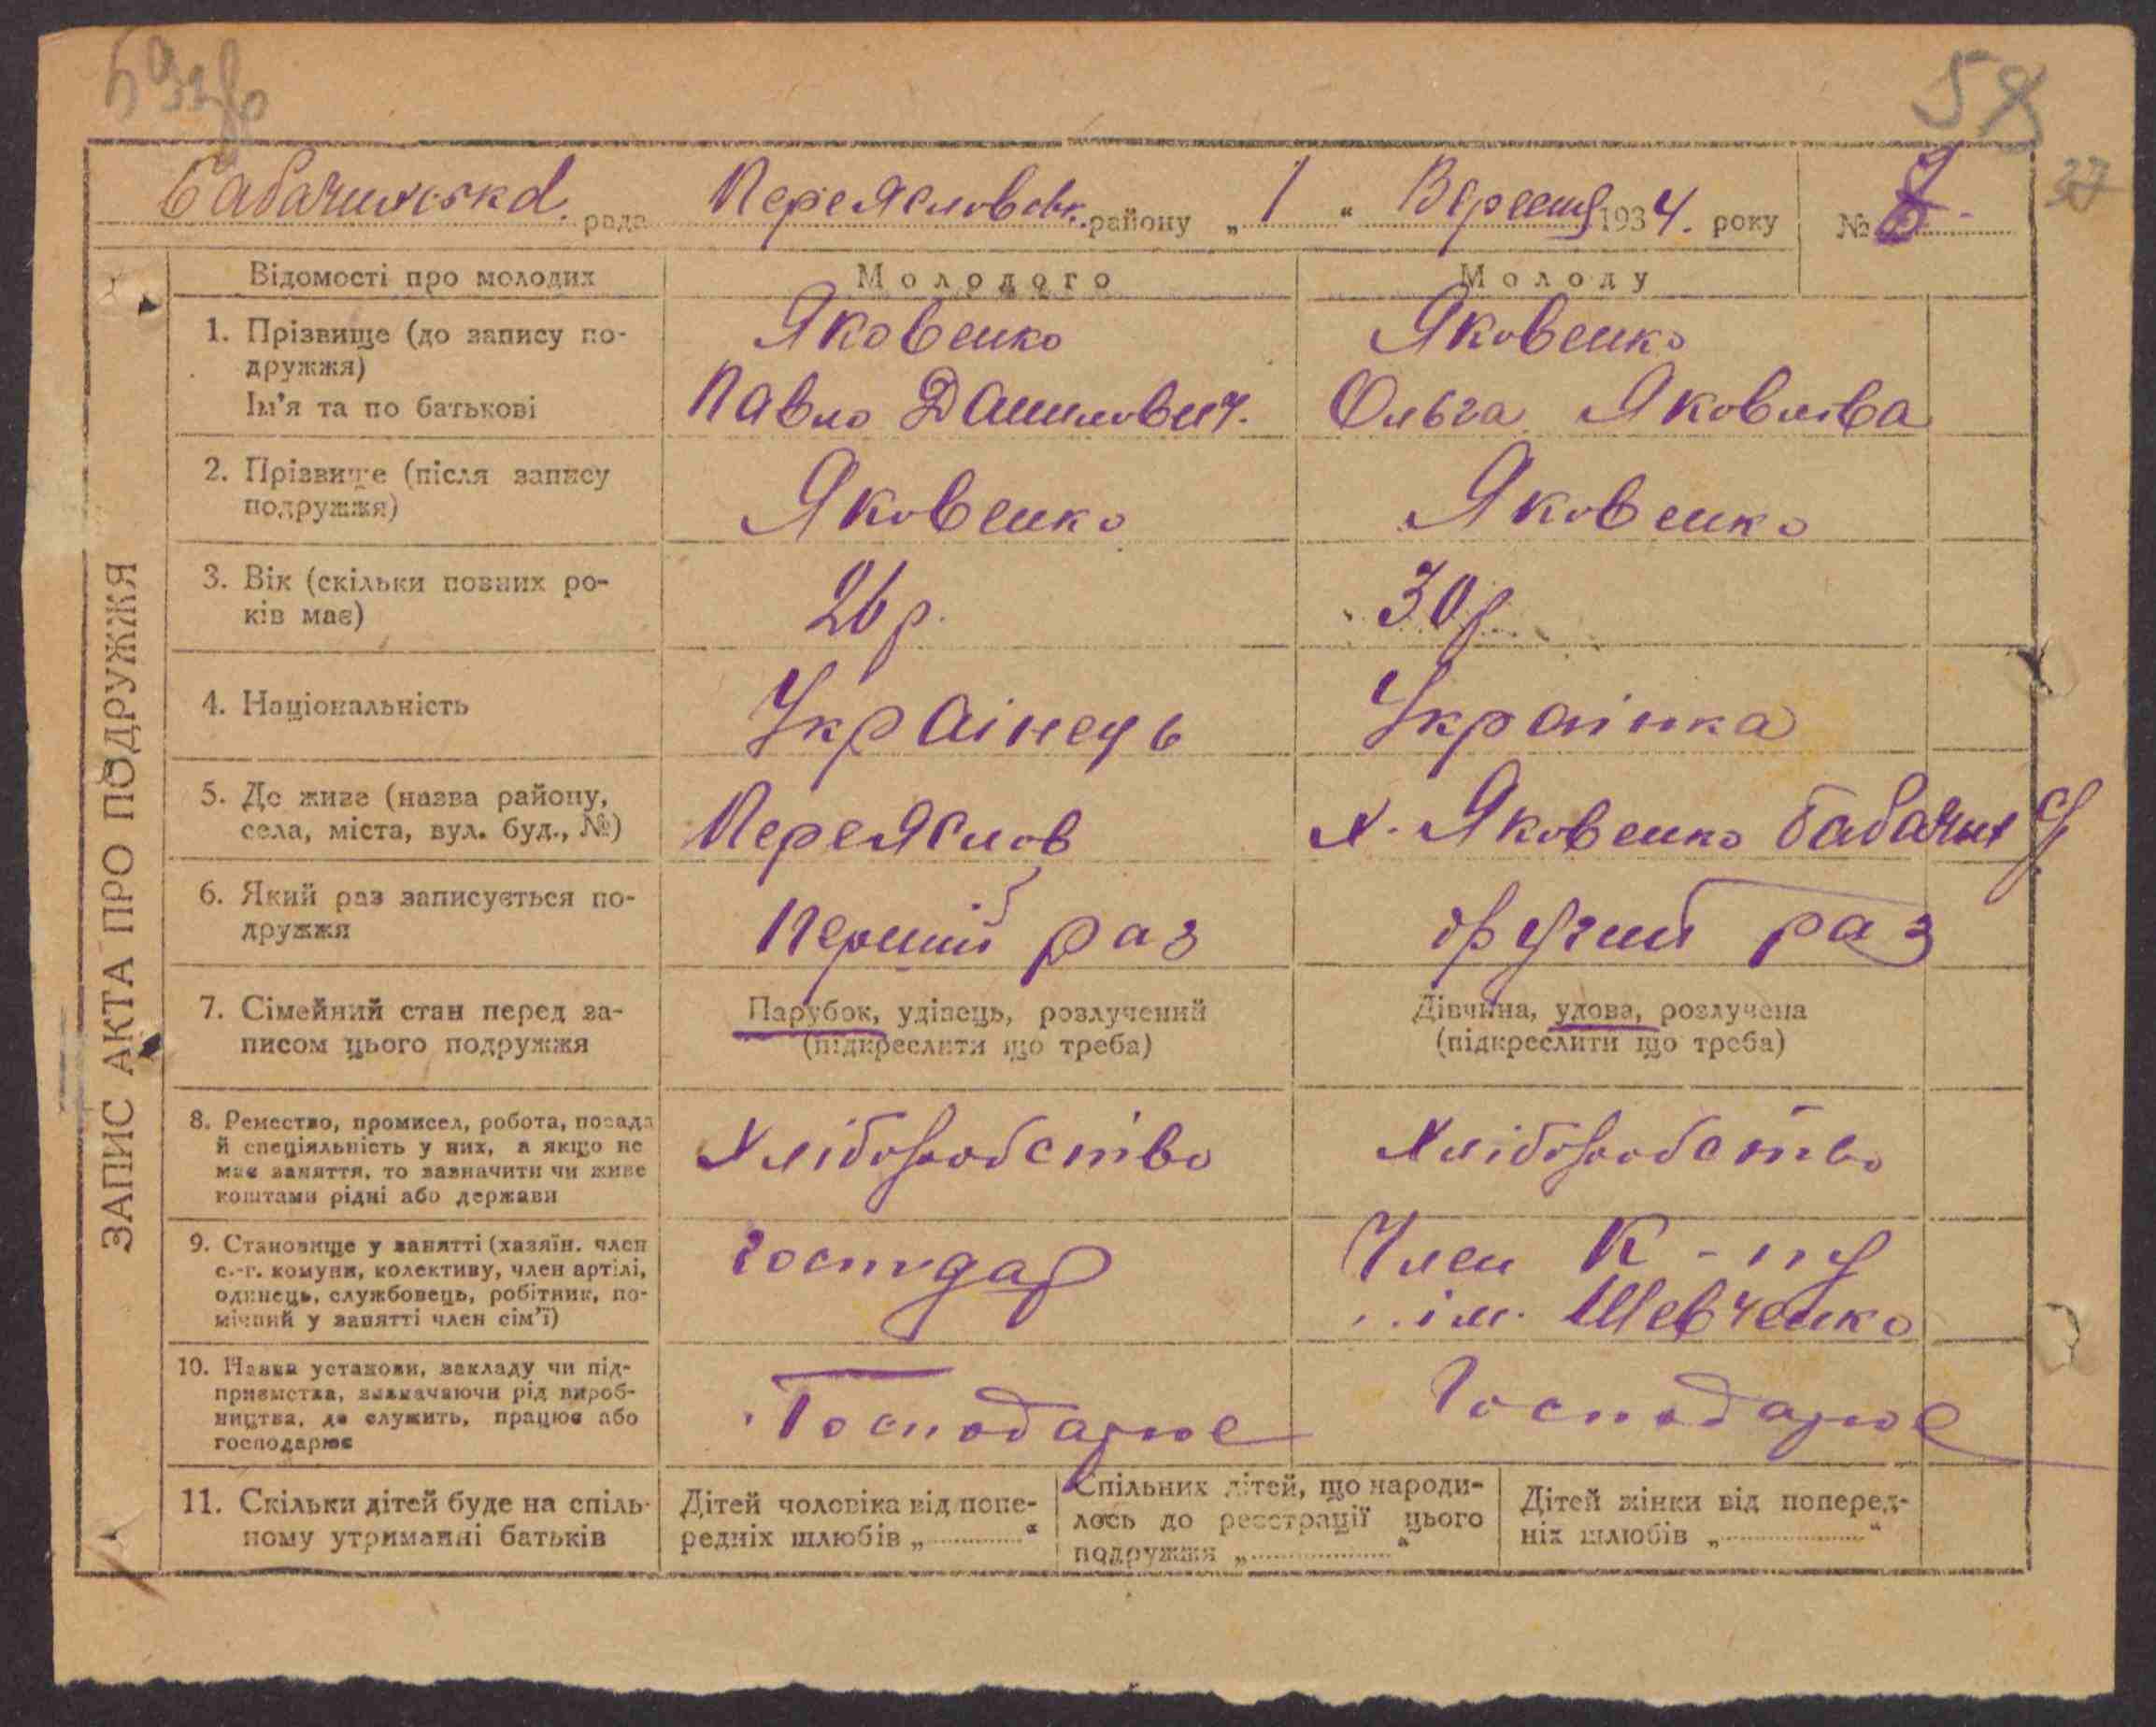 58
37
Бабачиховська рада Переясловськ. району „1“ Вересня 1934. року №
ЗАПИС АКТА ПРО ПОДРУЖЖЯ
Відомості про молодих Молодого Молоду
1. Прізвище (до запису по- Яковенко Яковенко
дружжя)
Ім'я та по батькові Павло Данилович. Ольга Яковліва
2. Прізвище (після запису
подружжя) Яковенко Яковенко
3. Вік (скільки повних ро-
ків має) 26 р. 30 р.
4. Національність Українець Українка
5. Де живе (назва району,
села, міста, вул. буд., №) Переяслов х. Яковенко Бабачих
6. Який раз записується по-
дружжя Перший раз другий раз
7. Сімейний стан перед за- Парубок, удівець, розлучений Дівчина, удова, розлучена
писом цього подружжя (підкреслити що треба) (підкреслити що треба)
8. Ремество, промисел, робота, посада
й спеціяльність у них, а якщо не Хліборобство Хліборобство
має заняття, то зазначити чи живе
коштами рідні або держави
9. Становище у занятті (хазяїн. член
с.-г. комуни, колективу, член артілі, господар Член К-пу
одинець, службовець, робітник, по- ім. Шевченко
мічний у занятті член сім'ї)
10. Назва установи, закладу чи під-
приємства, зазначаючи рід вироб-
ництва, де служить, працює або Господарює Господарює
господарює
11. Скільки дітей буде на спіль- Дітей чоловіка від попе- Спільних дітей, що народи- Дітей жінки від поперед-
ному утриманні батьків редніх шлюбів „ “ лось до реєстрації цього ніх шлюбів „ “
подружжя „ “